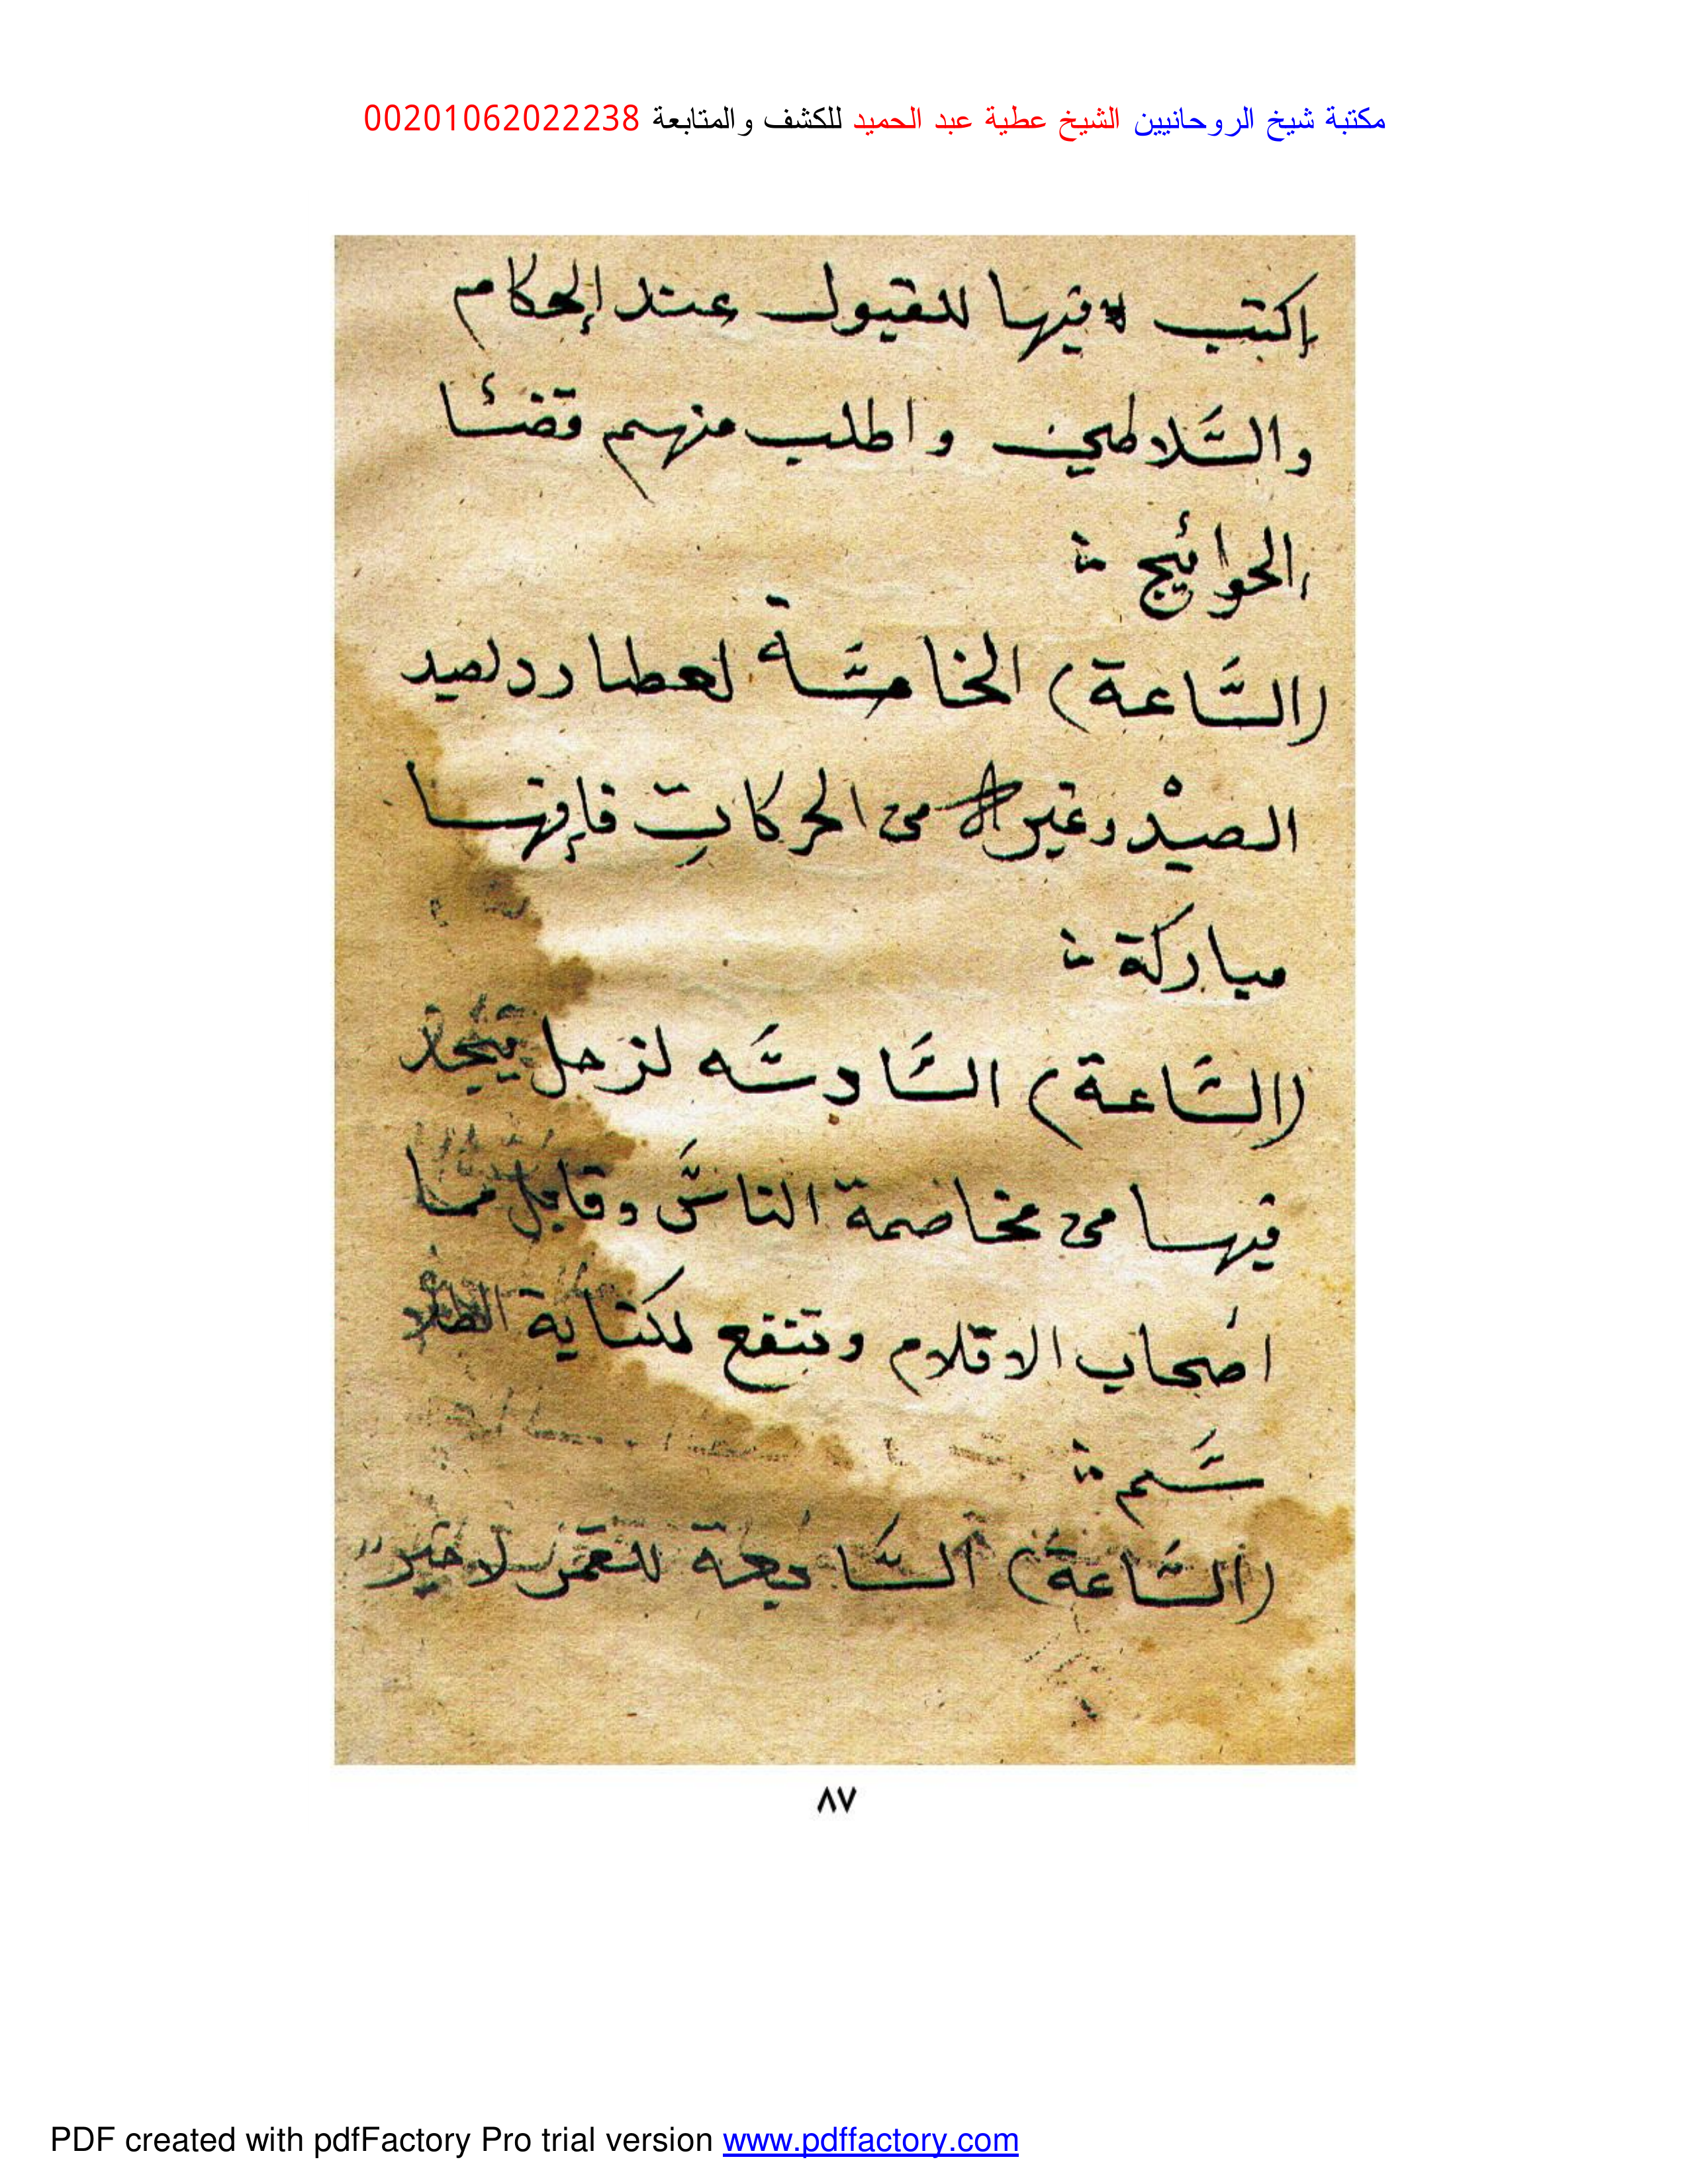 مكتبة شيخ الروحانيين الشيخ عطية عبد الحميد للكشف والمتابعة 00201062022238
اكتب فيها للقبول عند الحكام
والسلاطين واطلب منهم قضئا
الحوائج
(الساعة) الخامسة لعطارد لصيد
الصيد وغيره من الحركات فإنها
مباركة
(الساعة) السادسه لزحل يتحذر
فيها من مخاصمة الناس وقابل
اصحاب الاقلام وتنفع لكتابة الطلا
سم
(الساعة) السابعة للقمر لا خير
٨٧
PDF created with pdfFactory Pro trial version www.pdffactory.com